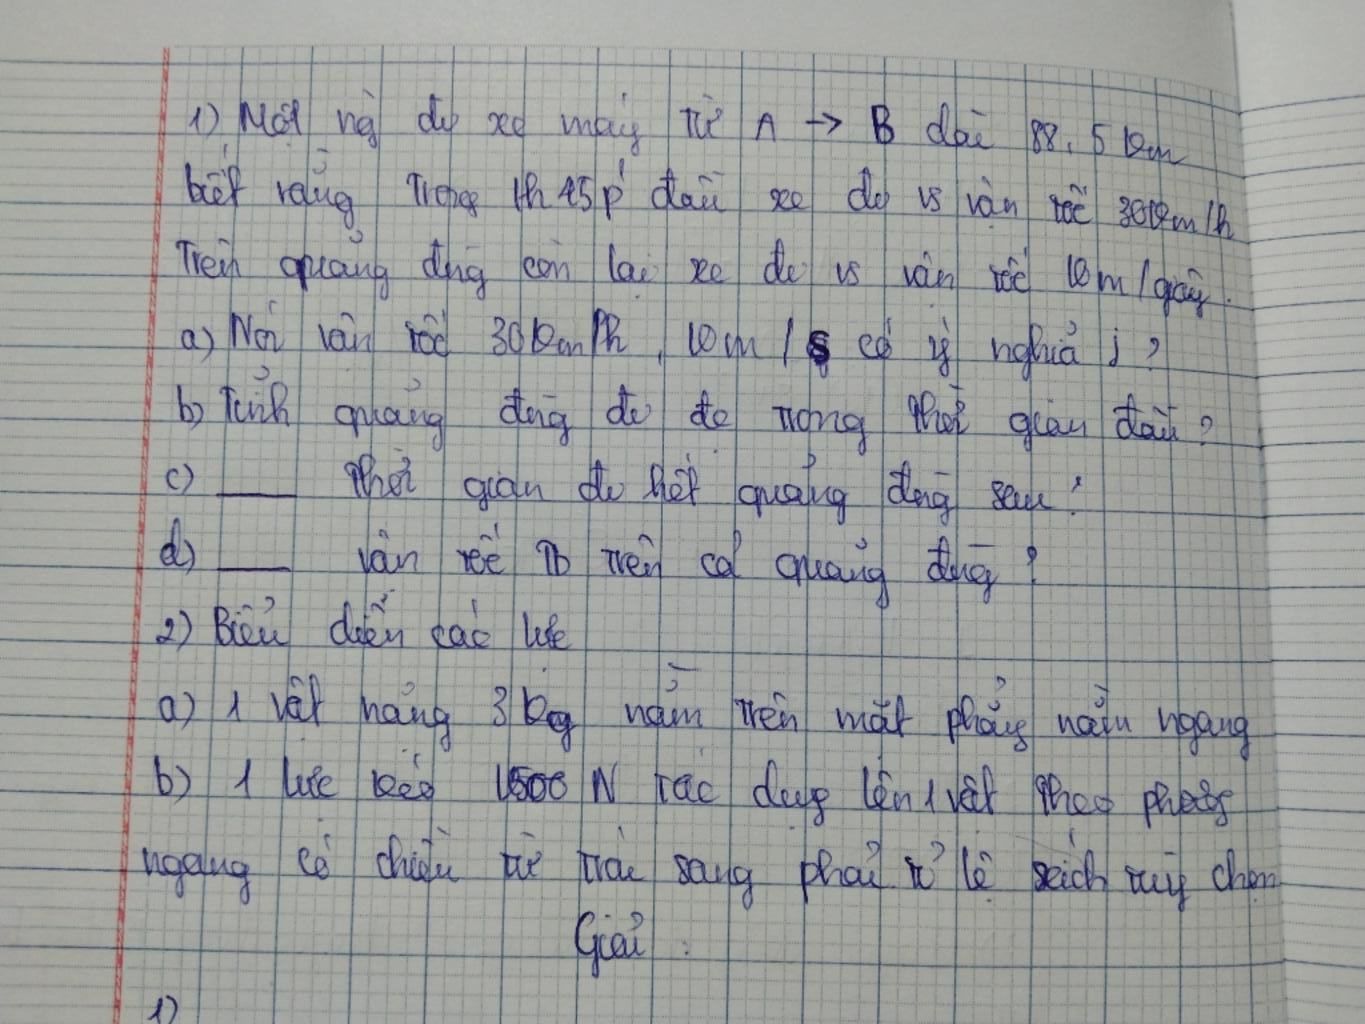 1) Một ng đi xe máy từ A → B dài 88,5 km
biết rằng trong 1h45p đầu xe đi vs vận tốc 30km/h
Trên quảng đng còn lại xe đi vs vận tốc 10m/giây.
a) Nói vận tốc 30km/h, 10m/s có ý nghĩa j?
b) Tính quảng đng đi đc trong thời gian đầu?
c) ___ thời gian đi hết quảng đng sau?
d) ___ vận tốc Tb trên cả quảng đng?
2) Biểu diễn các lực
a) 1 vật nặng 3kg nằm trên mặt phẳng nằm ngang
b) 1 lực kéo 1500 N tác dụng lên 1 vật theo phương
ngang có chiều từ trái sang phải tỉ lệ xích tùy chọn
Giải:
1)